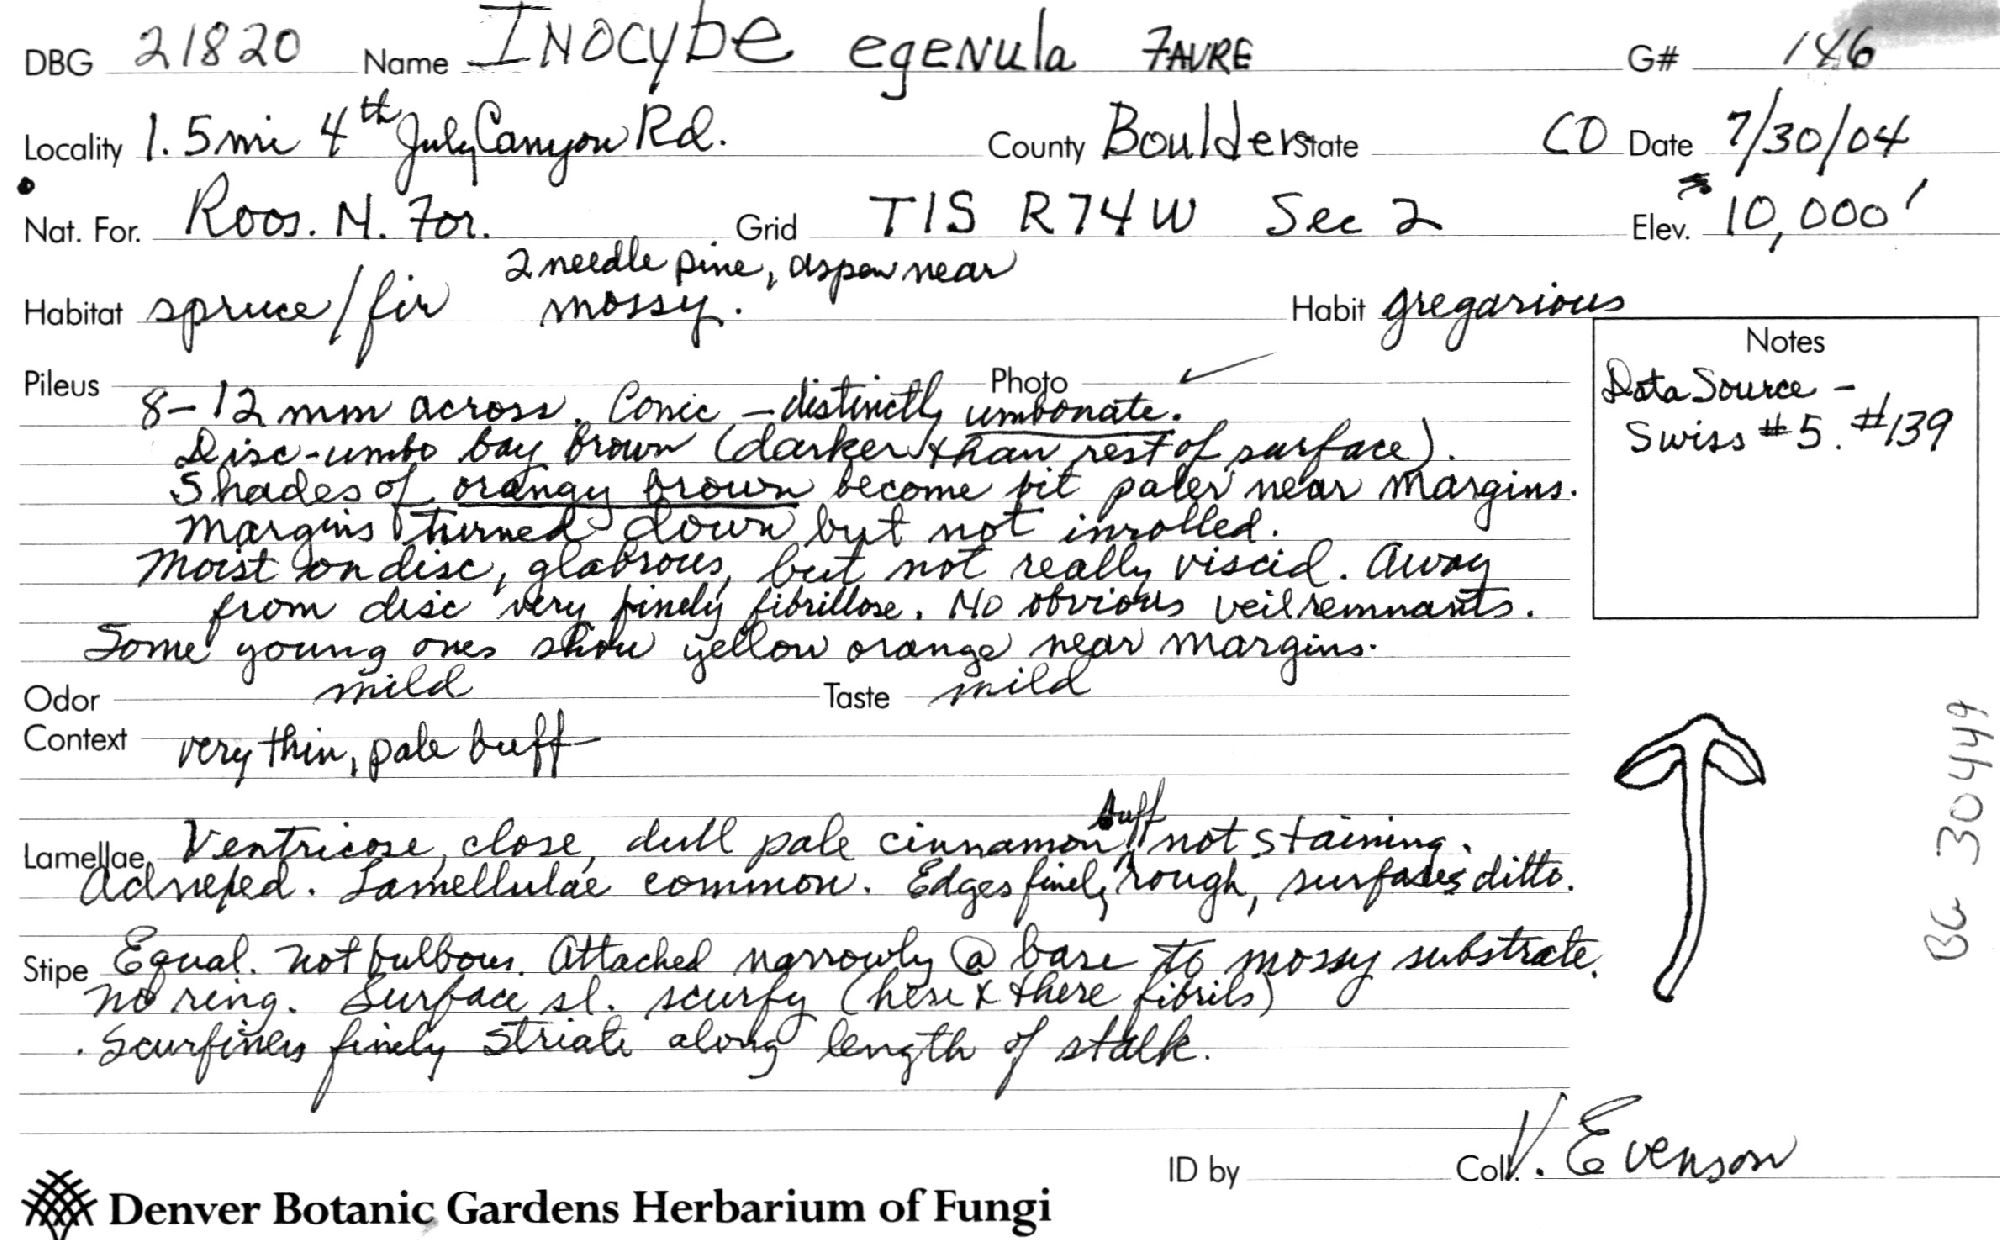 DBG 21820 Name Inocybe egenula FAVRE G# 146
Locality 1.5 mi 4th July Canyon Rd. County Boulder State CO Date 7/30/04
Nat. For. Roos. N. For. Grid T1S R74W Sec 2 Elev. 10,000'
2 needle pine, aspen near
Habitat spruce/fir mossy. Habit gregarious
Pileus Photo
8-12 mm across. Conic - distinctly umbonate.
Disc-umbo bay brown (darker than rest of surface).
Shades of orangy brown become bit paler near margins.
Margins turned down but not inrolled.
Moist on disc, glabrous, but not really viscid. Away
from disc very finely fibrillose. No obvious veil remnants.
Some young ones show yellow orange near margins.
Odor mild Taste mild
Context very thin, pale buff
Lamellae Ventricose, close, dull pale cinnamon buff, not staining.
Adnexed. Lamellulae common. Edges finely rough, surfaces ditto.
Stipe Equal. Not bulbous. Attached narrowly @ base to mossy substrate.
No ring. Surface sl. scurfy (here & there fibrils)
. Scurfiness finely striate along length of stalk.
Notes
Data Source -
Swiss #5. #139
BG 30449
ID by Coll. V. Evenson
Denver Botanic Gardens Herbarium of Fungi